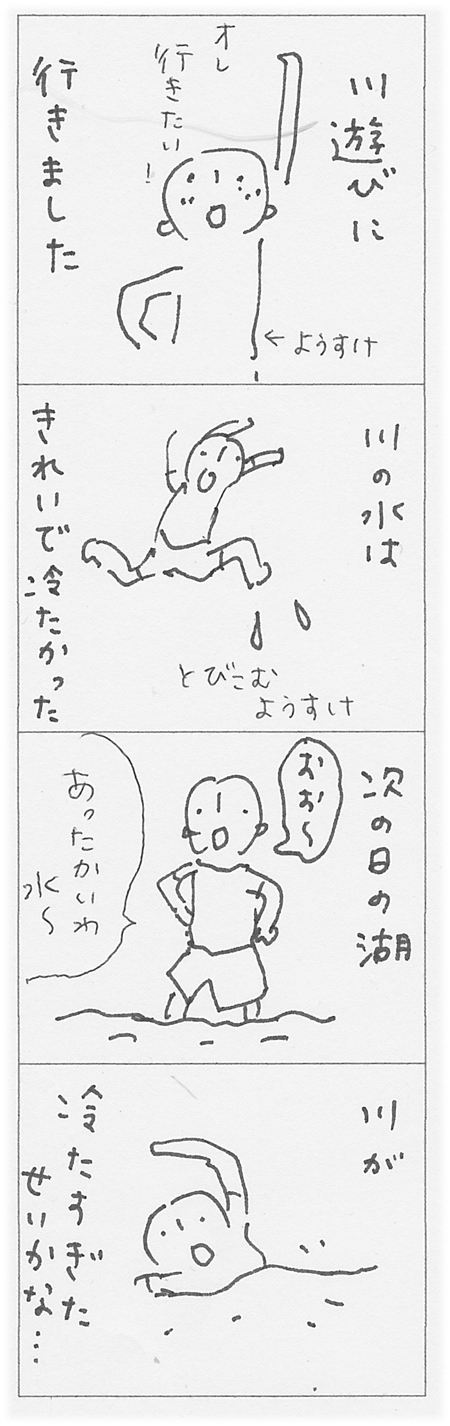 川遊びに
オレ
行きたい！
行きました
←ようすけ
川の水は
きれいで冷たかった
とびこむ
ようすけ
次の日の湖
おお〜
あったかいわ
水〜
川が
冷たすぎた
せいかな…